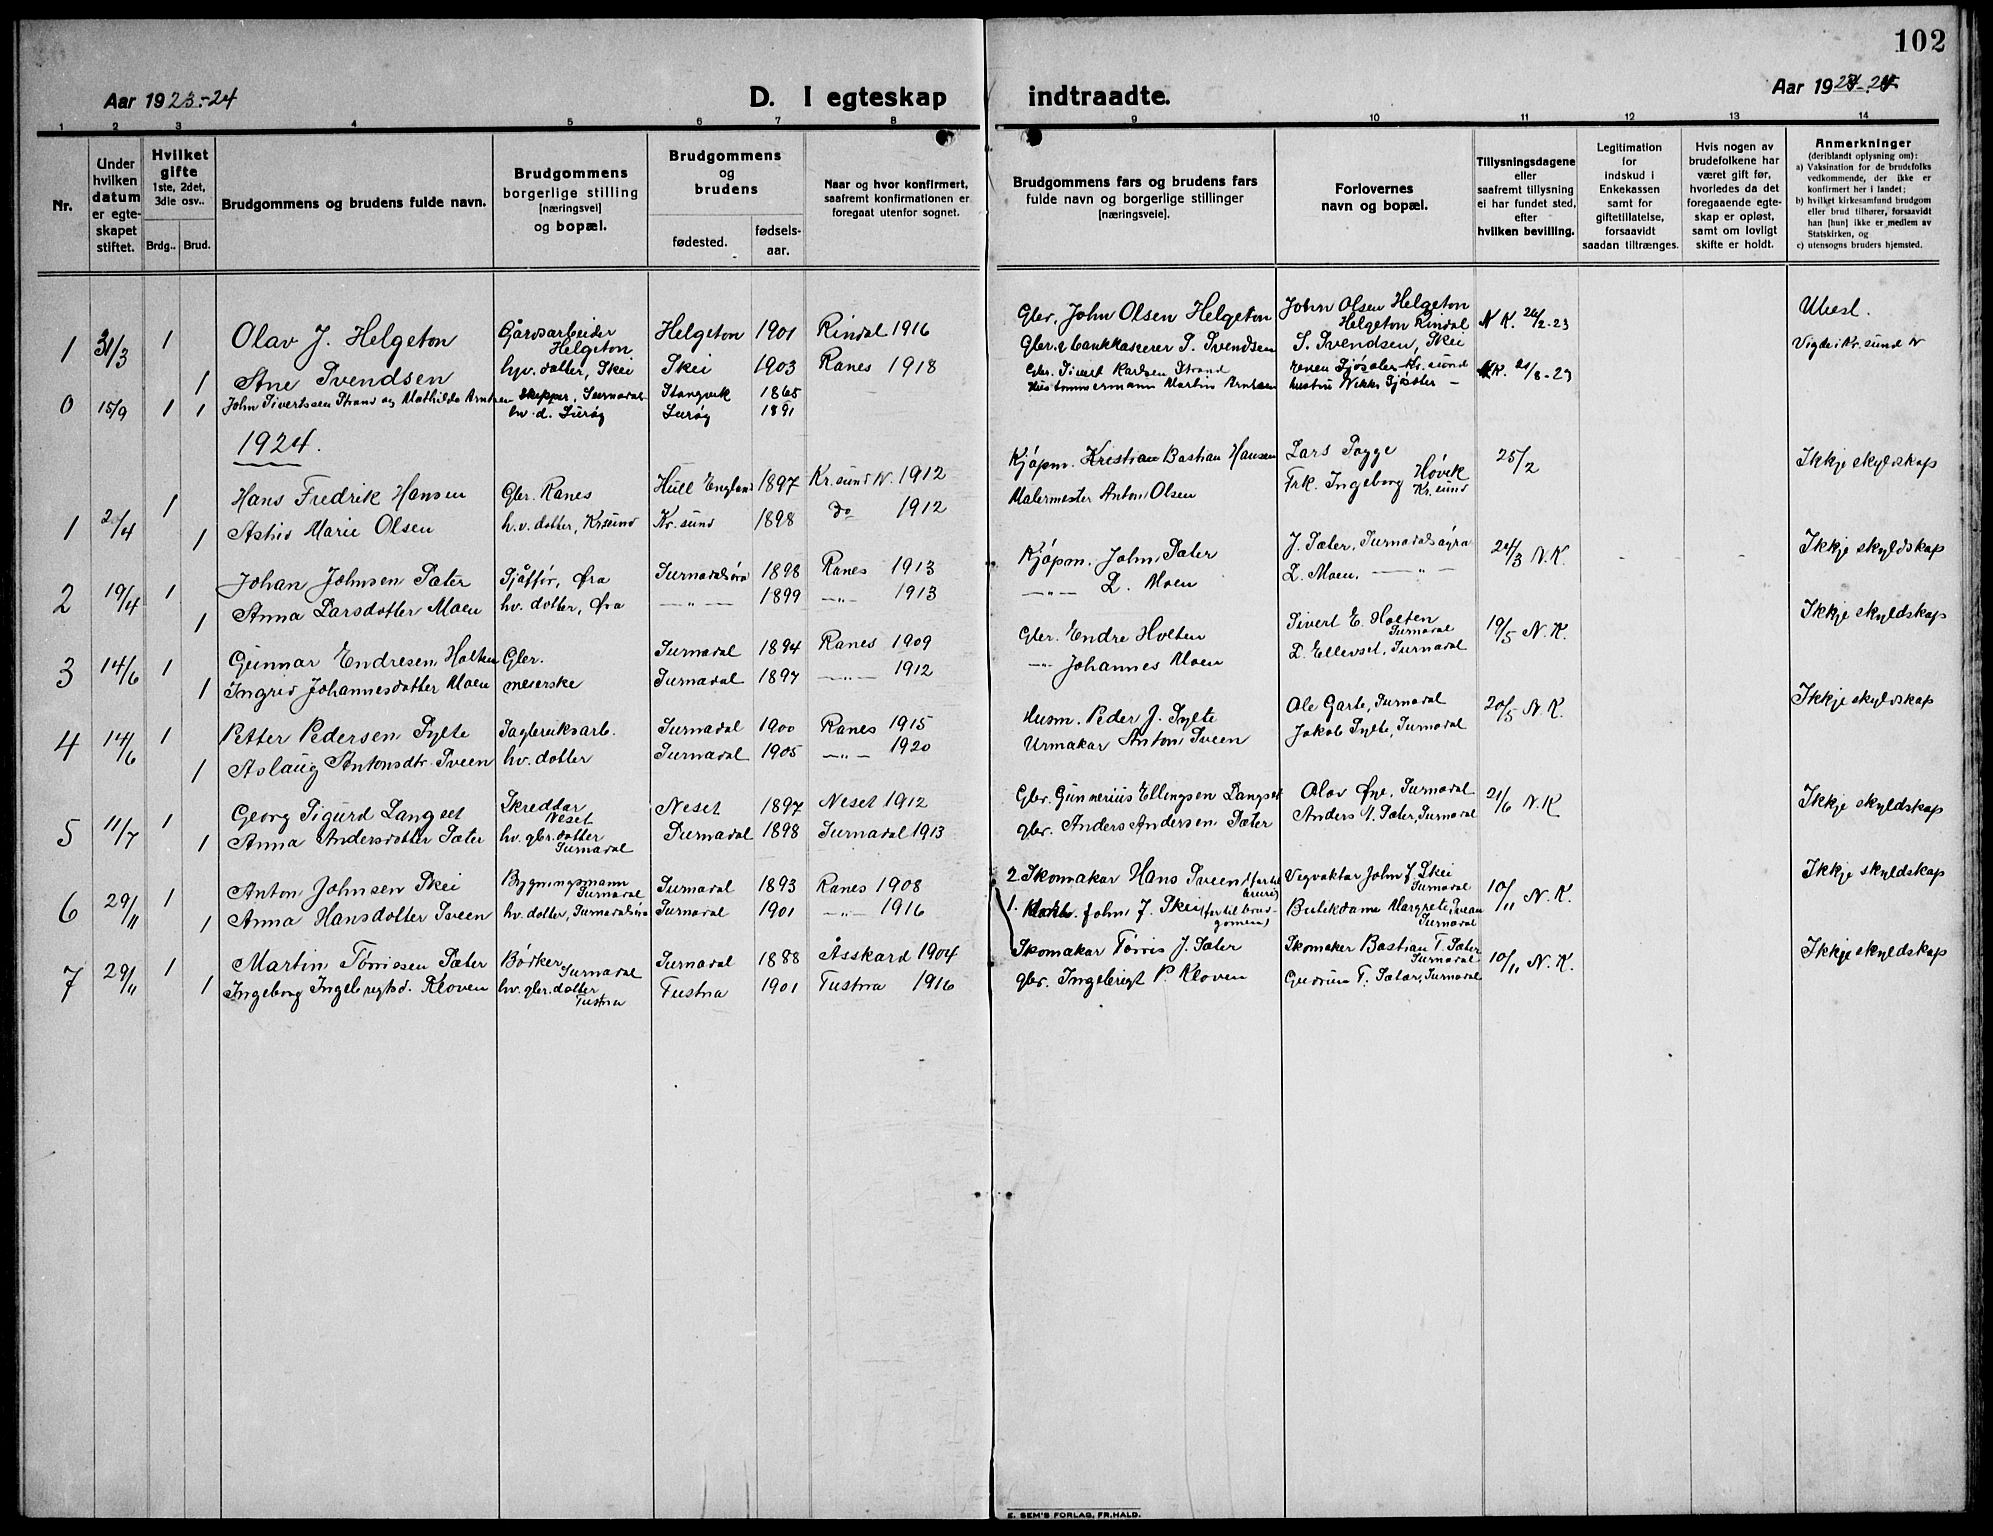 102
Aar 1923-24
D. I egteskap indtraadte.
Aar 19
1 2 3 4 5 6 7 8 9 10 11 12 13 14
Nr.
Under hvilken datum er egte- skapet stiftet.
Hvilket gifte 1ste, 2det, 3die osv..
Brdg.. Brud.
Brudgommens og brudens fulde navn.
Brudgommens borgerlige stilling [næringsvei] og bopæl.
Brudgommens og brudens
fødested.
fødsels- aar.
Naar og hvor konfirmert, saafremt konfirmationen er foregaat utenfor sognet.
Brudgommens fars og brudens fars fulde navn og borgerlige stillinger [næringsveie].
Forlovernes navn og bopæl.
Tillysningsdagene eller saafremt tillysning ei har fundet sted, efter hvilken bevilling.
Legitimation for indskud i Enkekassen samt for giftetillatelse, forsaavidt saadan tiltrænges.
Hvis nogen av brudefolkene har været gift før, hvorledes da det foregaaende egte- skap er opløst, samt om lovligt skifte er holdt.
Anmerkninger (deriblandt oplysning om):
a) Vaksination for de brudefolks vedkommende, der ikke er konfirmert her i landet;
b) hvilket kirkesamfund brudgom eller brud tilhører, forsaavidt han [hun] ikke er medlem av Statskirken, og
c) utensogns bruders hjemsted.
1 31/3 1 Olav J. Helgeton Gårdsarbeider Helgeton Helgeton 1901 Rindal 1916 Gbr. John Olsen Helgeton John Olsen Helgeton Helgeton Rindal N.K. 2-23 Ubesl.
1 Ane Svendsen hv. dotter, Skei Skei 1903 Ranes 1918 Gbr. & bankkaserer S. Svendsen S. Svendsen, Skei Vigde i Kr.sund N
0 15/9 1 1 John Sivertssen Strand og Mathilde Arntzen Skipper, Surnadal Stangvik 1865 Gbr. Sivert Karlsen Strand
hv. d. Surøy Surøy 1891 Martin Arntzen
1924.
1 2/4 1 Hans Fredrik Hansen Gbr. Ranes Hull England 1897 Kr.sund N. 1912 Kjøpm. Kristian Bastian Hansen Lars Togge 25/2 Ikkje skyldskap
1 Astrid Marie Olsen h.v. dotter, Kr.sund Kr.sund 1898 do 1912 Malermester Anton Olsen Frk. Ingeborg Høvik Kr.sund
2 19/4 1 Johan Johnsen Sæter Sjåffør, Øra Surnadalsøra 1898 Ranes 1913 Kjøpm. John Sæter J. Sæter, Surnadalsøyra 24/3 N.K. - - - Ikkje skyldskap
1 Anna Larsdotter Moen hv. dotter, Øra —„— 1899 —„— 1913 —„— L. Moen L. Moen. —„—
3 14/6 1 Gunnar Endresen Holten Gbr. Surnadal 1894 Ranes 1909 Gbr. Endre Holten Sivert E. Holten Surnadal 19/5 N.K. Ikkje skyldskap
1 Ingrid Johannesdotter Moen meierske Surnadal 1897 —„— 1912 —„— Johannes Moen L. Ellevset, Surnadal
4 14/6 1 Petter Pedersen Sylte Sagbruksarb. Surnadal 1900 Ranes 1915 Husm. Peder J. Sylte Ole Garte, Surnadal 20/5 N.K. Ikkje skyldskap
1 Aslaug Antonsdtr. Sveen hv. dotter Surnadal 1905 —„— 1920 Urmakar Anton Sveen Jakob Sylte, Surnadal
5 11/7 1 Georg Sigurd Langset Skreddar Neset Neset 1897 Neset 1912 Gbr. Gunnerius Ellingsen Langset Olav Øye, Surnadal 21/6 N.K Ikkje skyldskap
1 Anna Andersdotter Sæter hv. gbr. dotter Surnadal Surnadal 1898 Surnadal 1913 gbr. Anders Andersen Sæter Anders A. Sæter, Surnadal
6 29/11 1 Anton Johnsen Skei Bygningsmann Surnadal Surnadal 1893 Ranes 1908 2 Skomakar Hans Sveen (far til brura) Vegvaktar John J. Skei Surnadal 10/11 N.K. Ikkje skyldskap
1 Anna Hansdotter Sveen hv. dotter, Surnadalsøra Surnadal 1901 —„— 1916 1. John J. Skei (far til brud- gomen) Butikdame Margrete Sveen Surnadal
7 29/11 1 Martin Tørrissen Sæter Bødker Surnadal Surnadal 1888 Åsskard 1904 Skomakar Tørris J. Sæter Skomaker Bastian T. Sæter Surnadal 10/11 N.K. Ikkje skyldskap
1 Ingeborg Ingebregtsd. Kloven hv. gbr. dotter Tustna Tustna 1901 Tustna 1916 gbr. Ingebrigt P. Kloven Gudrun T. Sæter, Surnadal
E. SEM'S FORLAG, FR.HALD.